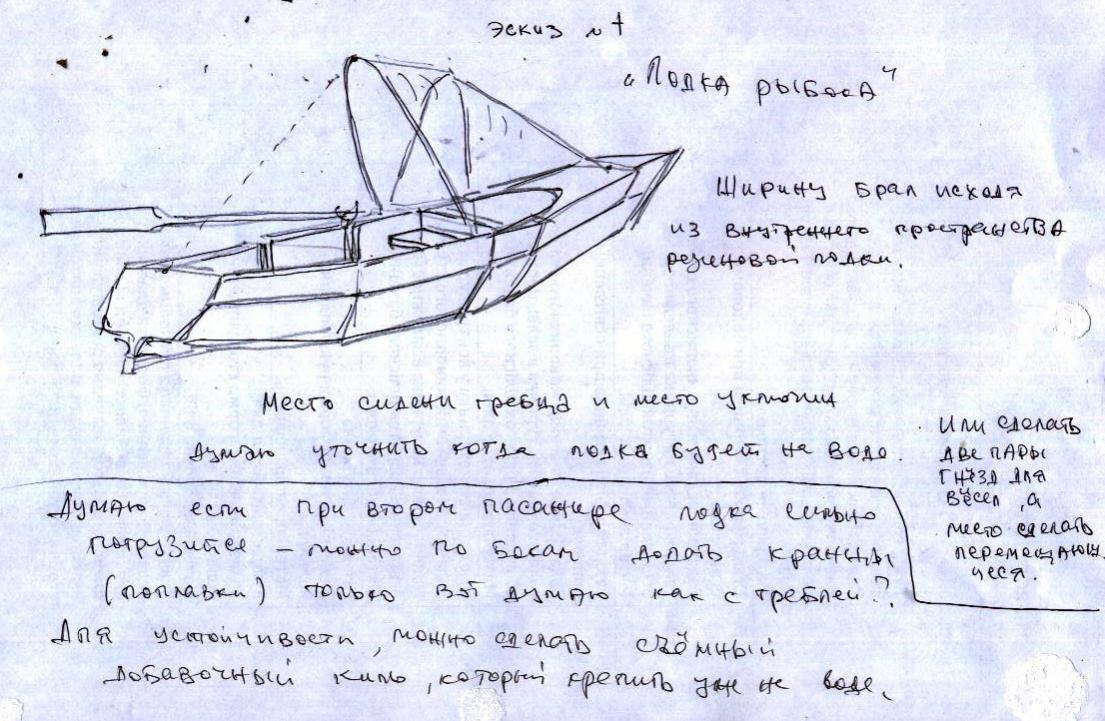 эскиз № 1
"Лодка рыбака"
Ширину брал исходя
из внутреннего пространства
резиновой лодки.
Место сидени гребца и место уключин
думаю уточнить когда лодка будет на воде.
Или сделать
две пары
гнёзд для
вёсел, а
место сделать
перемещающ.
иеся.
Думаю если при втором пасажире лодка сильно
погрузится – можно по бокам додать кранцы
(поплавки) только вот думаю как с греблей?
Для устойчивости, можно сделать съёмный
добавочный киль, который крепить уже на воде.